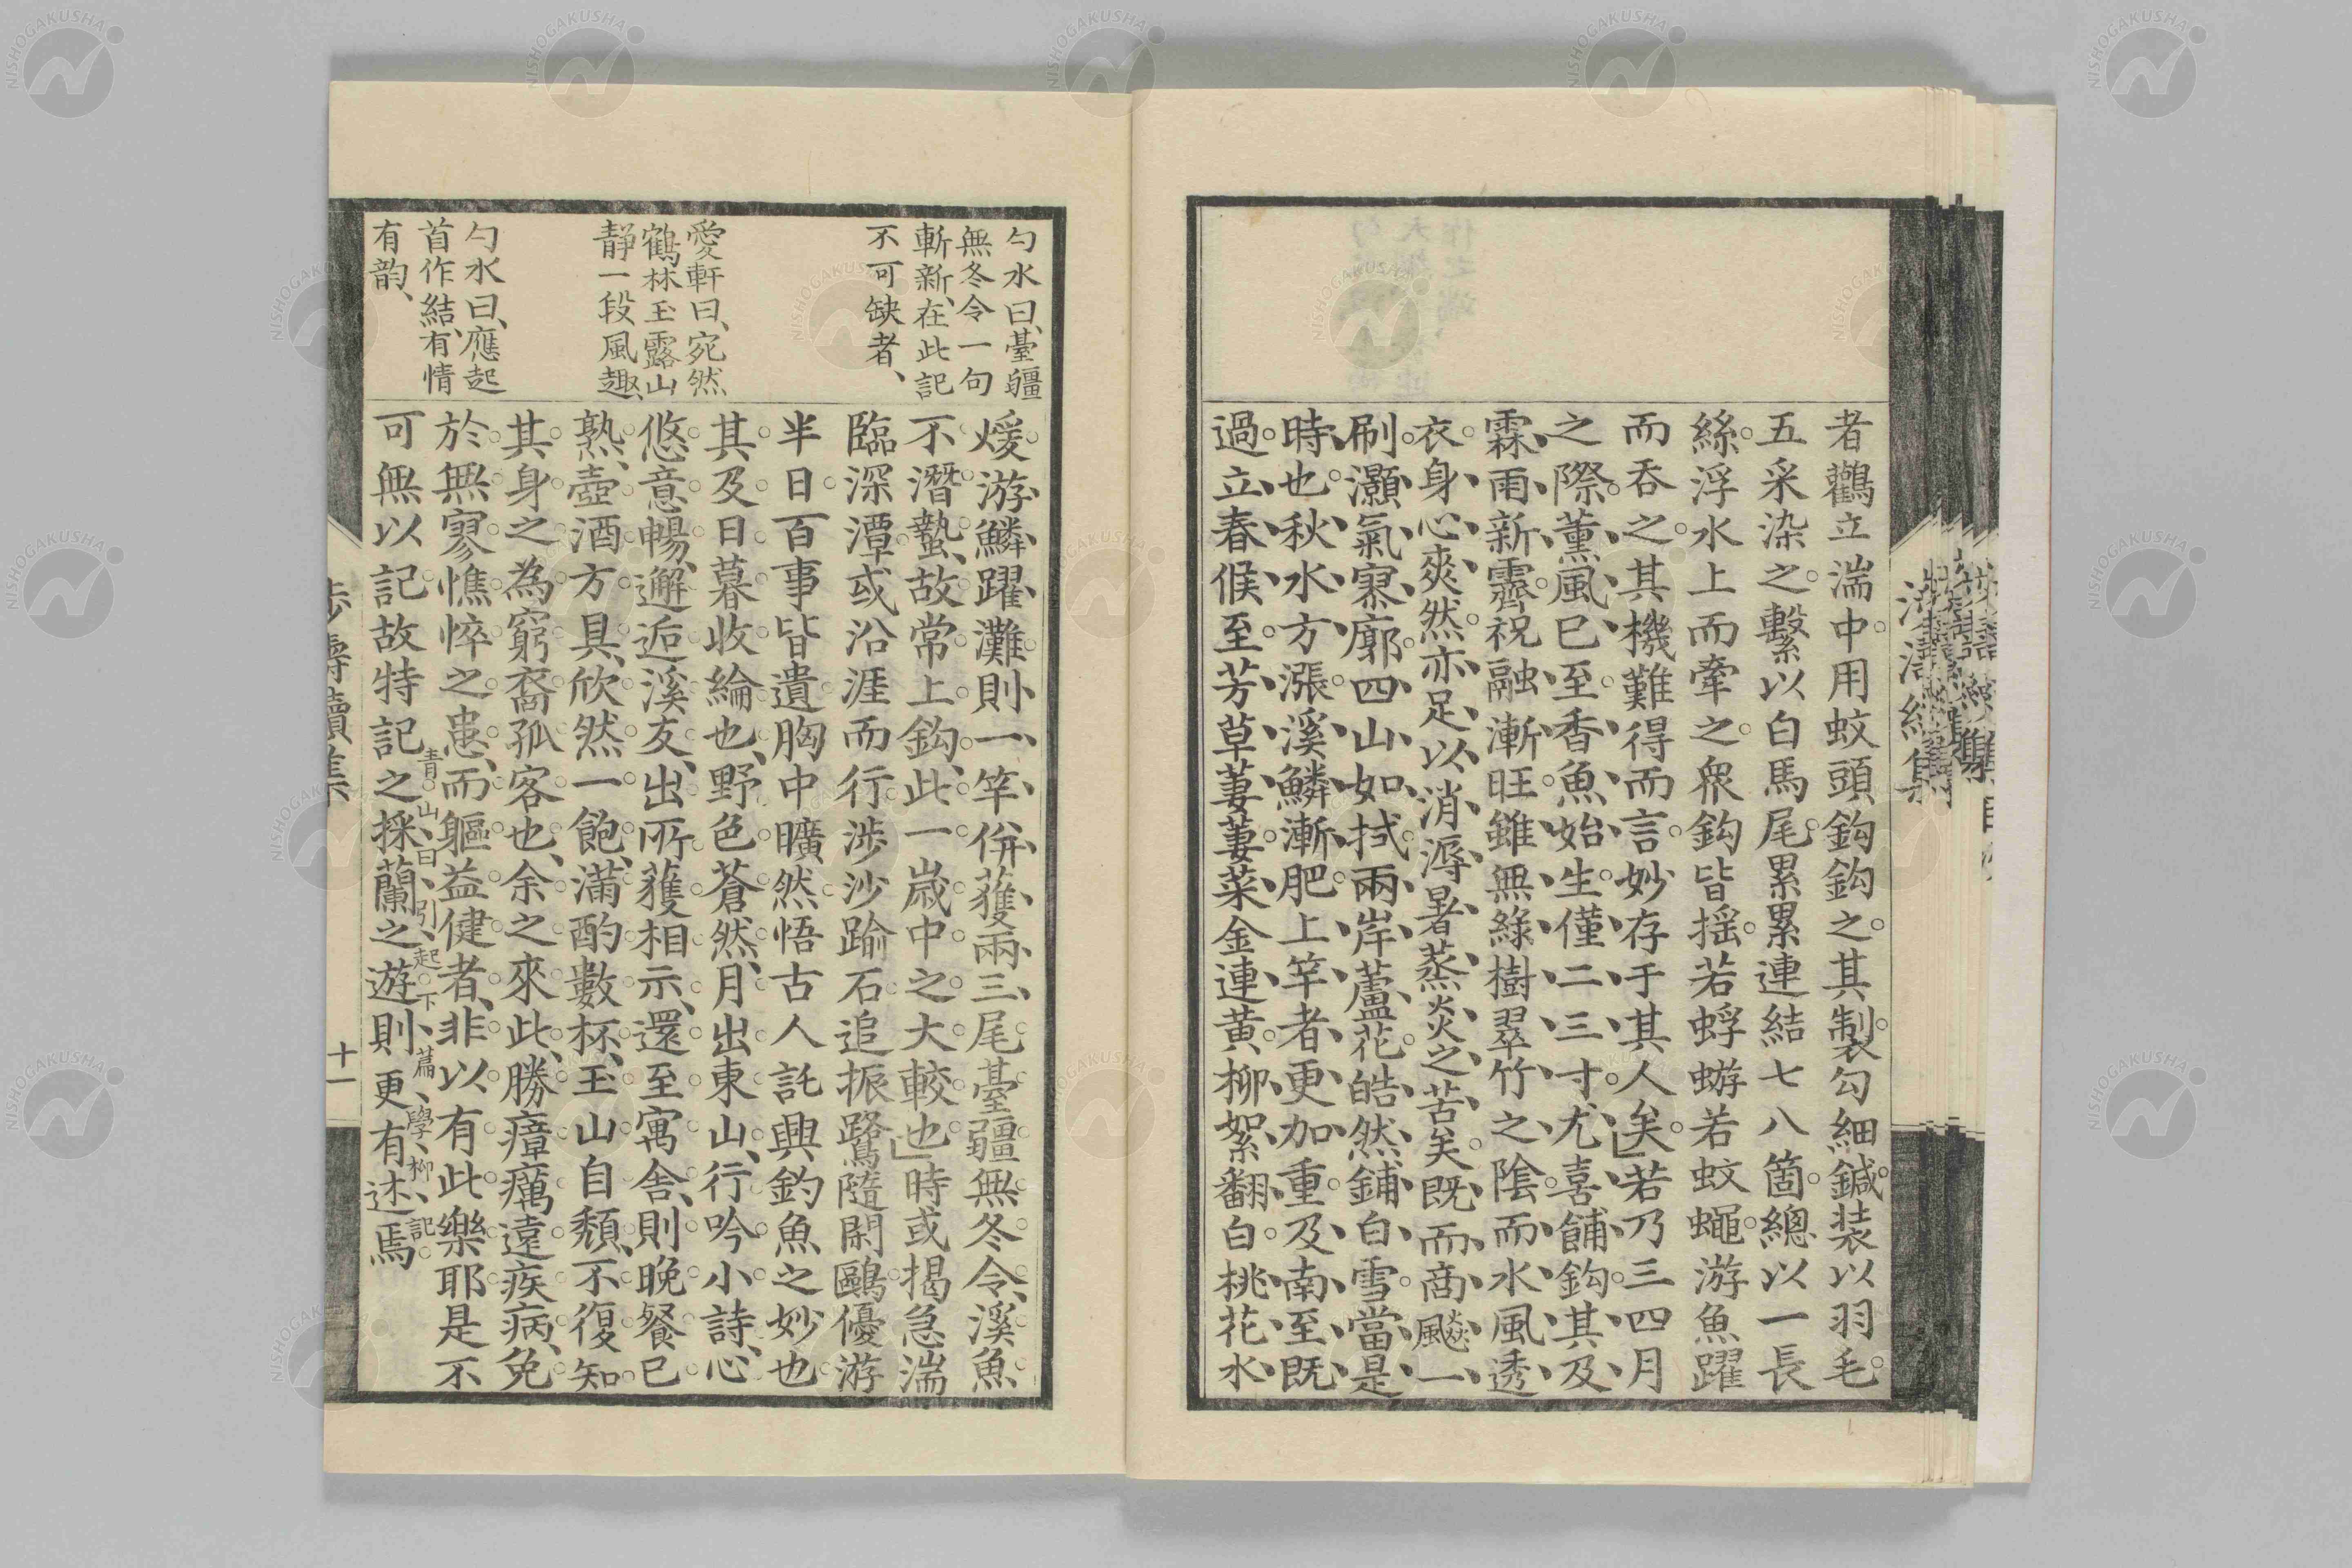 者鸛立湍中用蚊頭鈎鈎之其製勾細鍼装以羽毛
五采染之繫以白馬尾累累連結七八箇總以一長
絲浮水上而牽之衆鈎皆揺若蜉蝣若蚊蠅游魚躍
而吞之其機難得而言妙存于其人矣若乃三四月
之際薫風已至香魚始生僅二三寸尤喜餔鈎其及
霖雨新霽祝融漸旺雖無綠樹翠竹之陰而水風透
衣身心爽然亦足以消溽暑蒸炎之苦矣既而商飈一
刷灝氣寥廓四山如拭兩岸蘆花皓然鋪白雪當是
時也秋水方漲溪鱗漸肥上竿者更加重及南至既
過立春候至芳草萋萋菜金連黄柳絮翻白桃花水
勺水曰、臺疆
無冬令一句
斬新、在此記
不可缺者、
愛軒曰、宛然
鶴林玉露山
静一段風趣、
勺水曰、應起
首作結、有情
有韵、
煖游鱗躍灘則一竿併獲兩三尾臺疆無冬令、溪魚
不潛蟄、故常上鈎、此一歳中之大較也時或揭急湍
臨深潭或沿涯而行渉沙踰石追振鷺隨閑鷗優游
半日百事皆遺胸中曠然悟古人託興釣魚之妙也
其及日暮收綸也、野色蒼然、月出東山、行吟小詩、心
悠意暢、邂逅溪友、出所獲相示、還至寓舎、則晩餐已
熟、壺酒方具、欣然一飽、滿酌數杯、玉山自頽、不復知
其身之為窮裔孤客也、余之來此、勝瘴癘遠疾病、免
於無寥憔悴之患、而軀益健者、非以有此樂耶是不
青山、曰、引、起下、篇、學、柳、記
可無以記故特記之採蘭之遊則更有述焉
十一